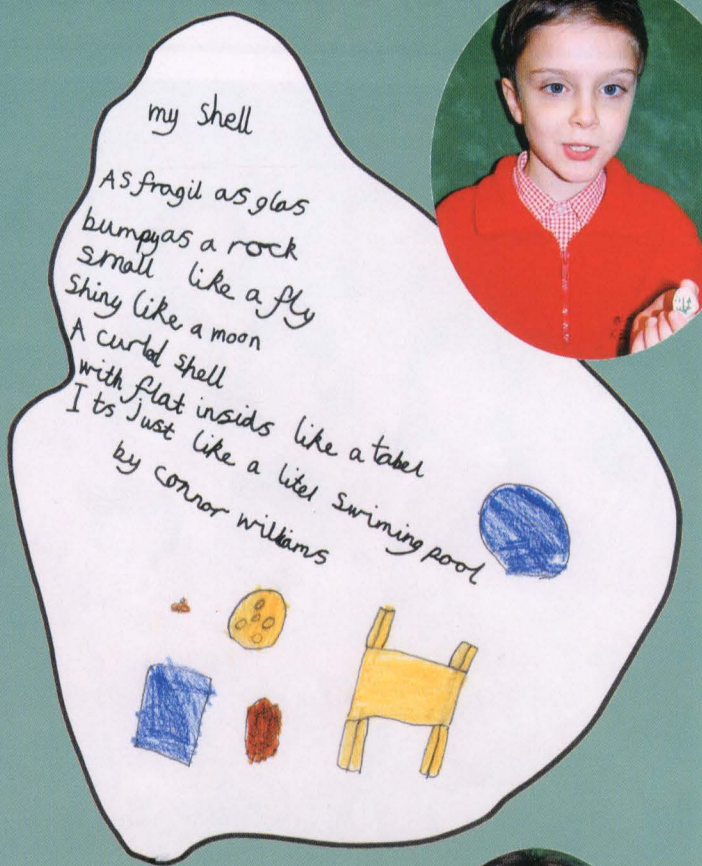 my shell
As fragil as glas
bumpy as a rock
small like a fly
Shiny like a moon
A curld shell
with flat insids like a tabel
Its just like a litel swiming pool
by connor williams